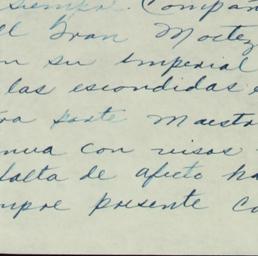 siempre. Compañ
el Gran Moctez
n su imperial
las escondidas
ra parte maestr
nua con visos
falta de afecto ha
mpre presente co